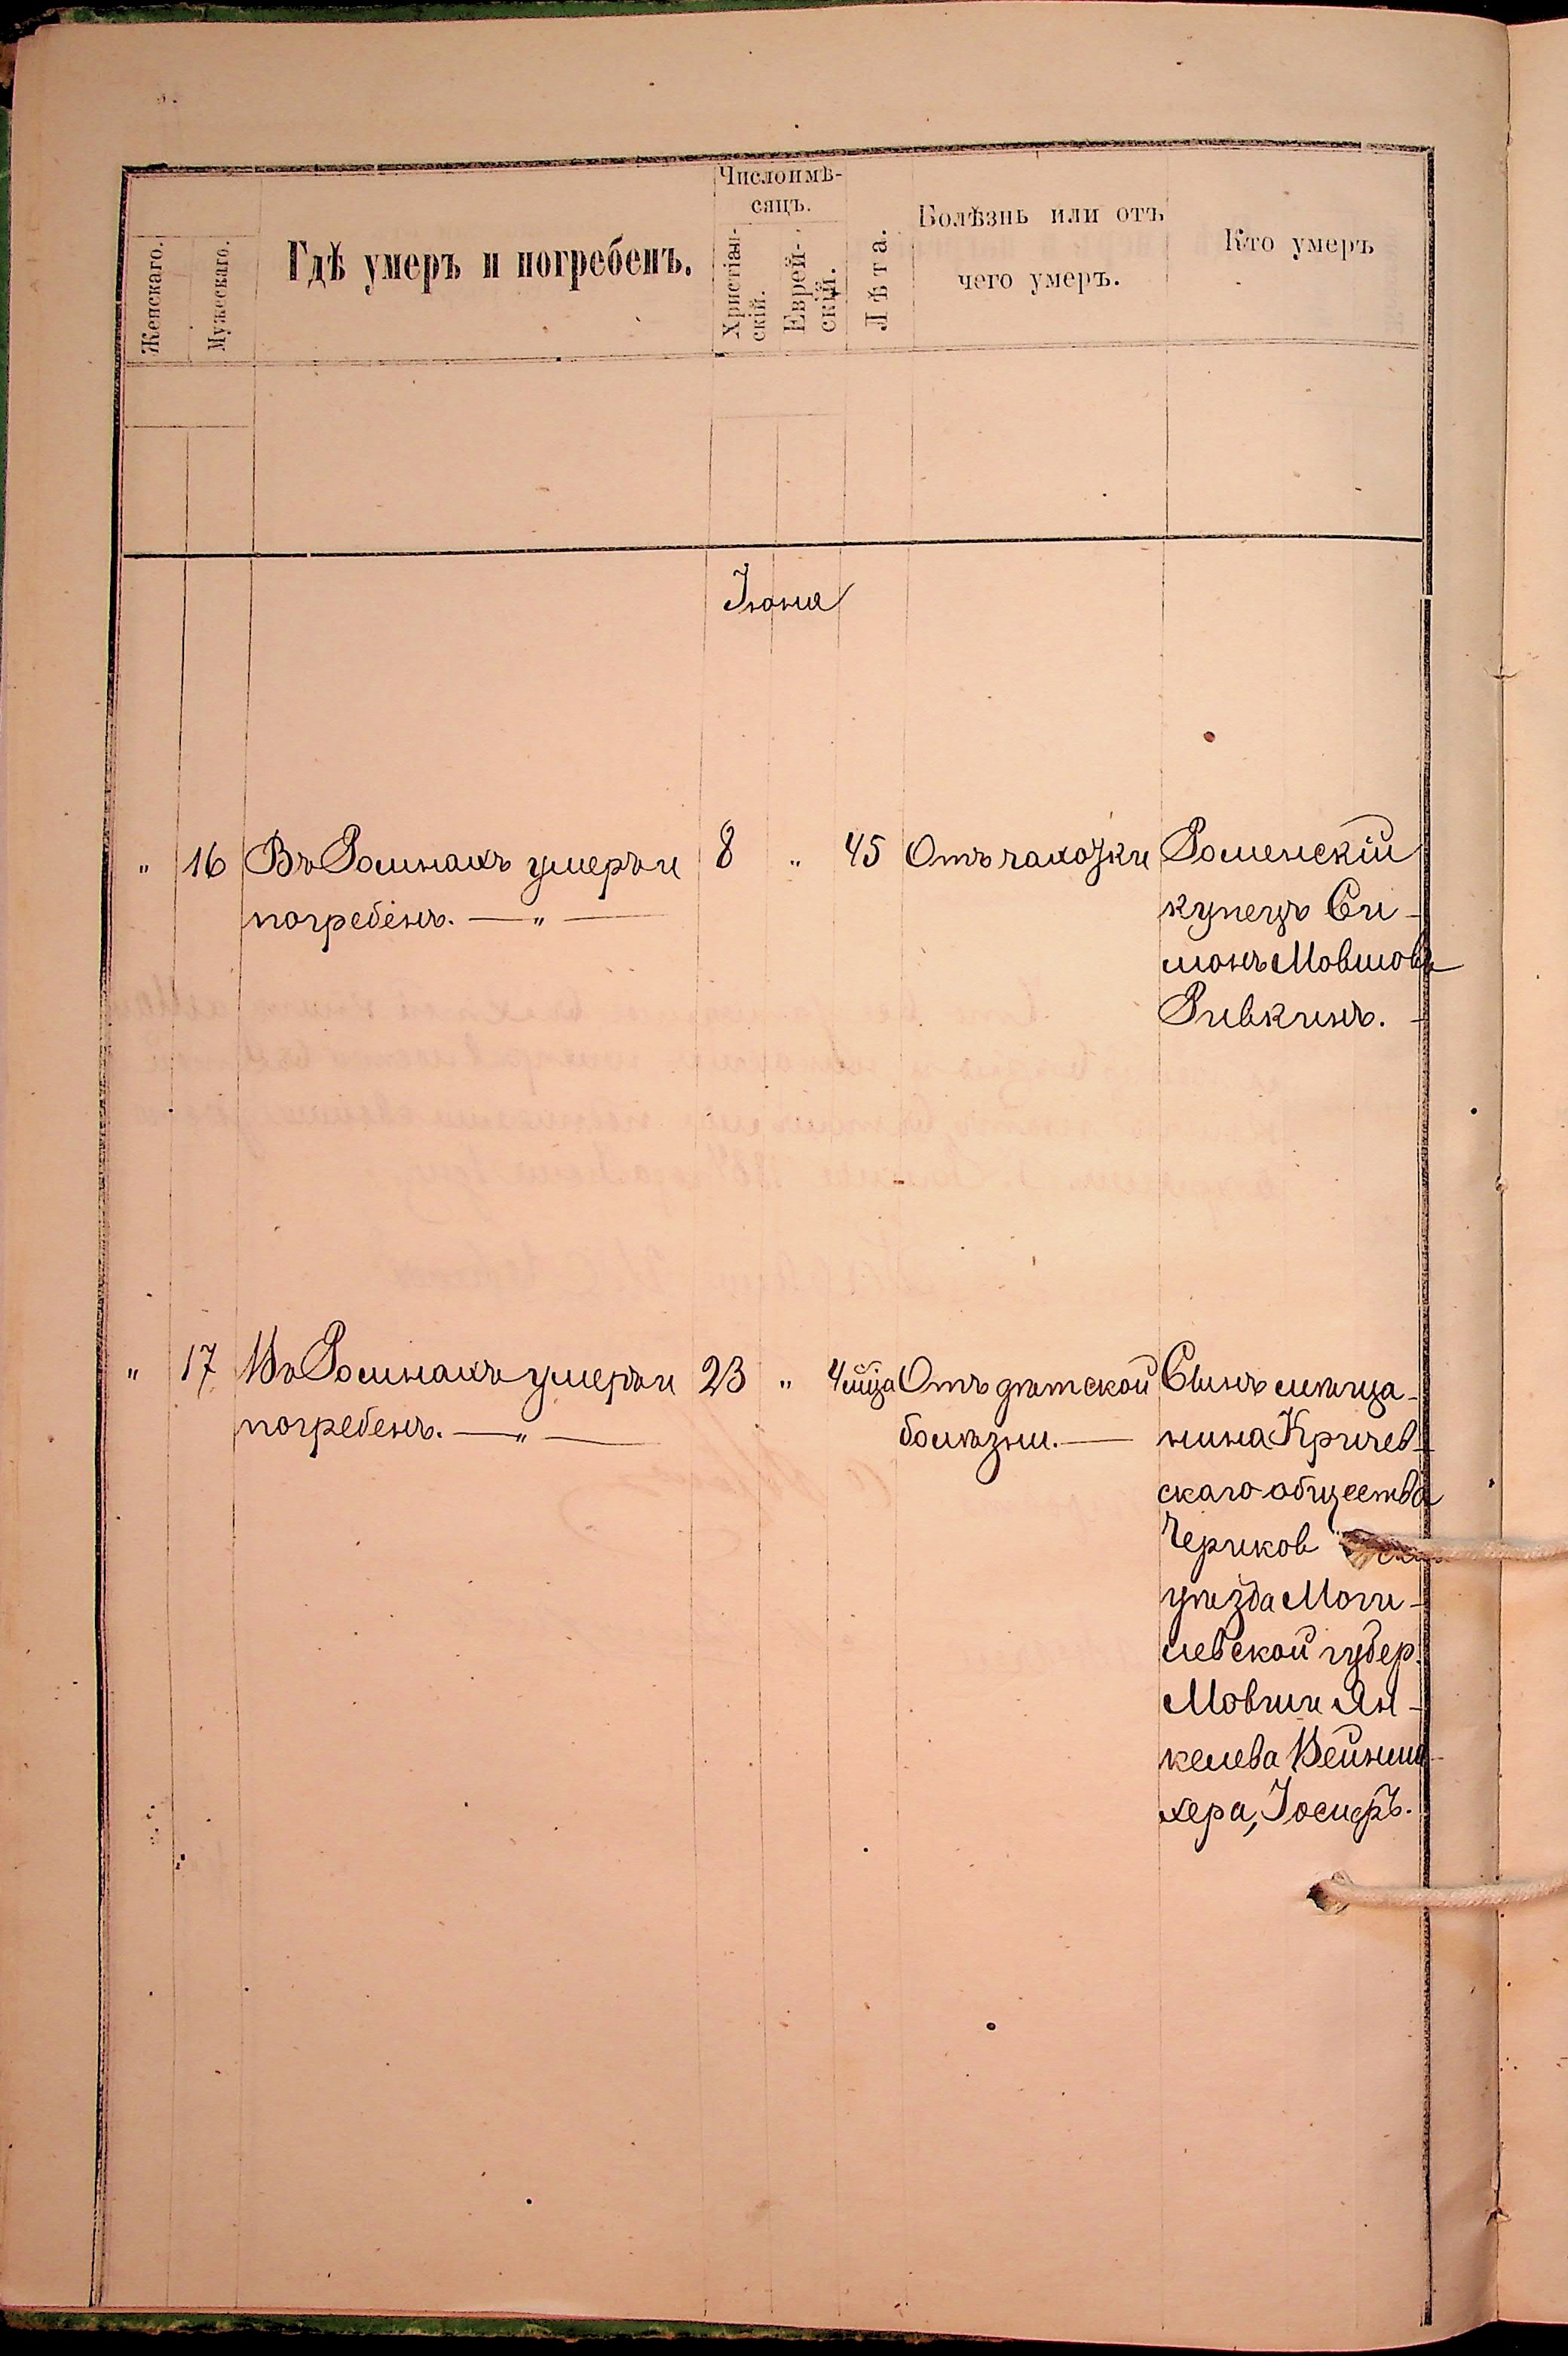 Женскаго.
Мужескаго.
Гдѣ умеръ и погребенъ.
Число и мѣ-
сяцъ.
Христіан-
скій.
Еврей-
скій.
Лѣта.
Болѣзнь или отъ
чего умеръ.
Кто умеръ
Іюня
" 16 Въ Ромнахъ умеръ и 8 " 45 Отъ чахотки Роменскій
погребенъ. — " — купецъ Си-
монъ Мовшовъ
Ривкинъ.
" 17 Въ Ромнахъ умеръ и 23 " 4 м-ца Отъ дѣтской Сынъ мѣща-
погребенъ. — " — болѣзни. — нина Кричев-
скаго общества
Чериков
уѣзда Моги-
левской губер.
Мовши Ян-
келева Вейнш
хера, Іосифъ.